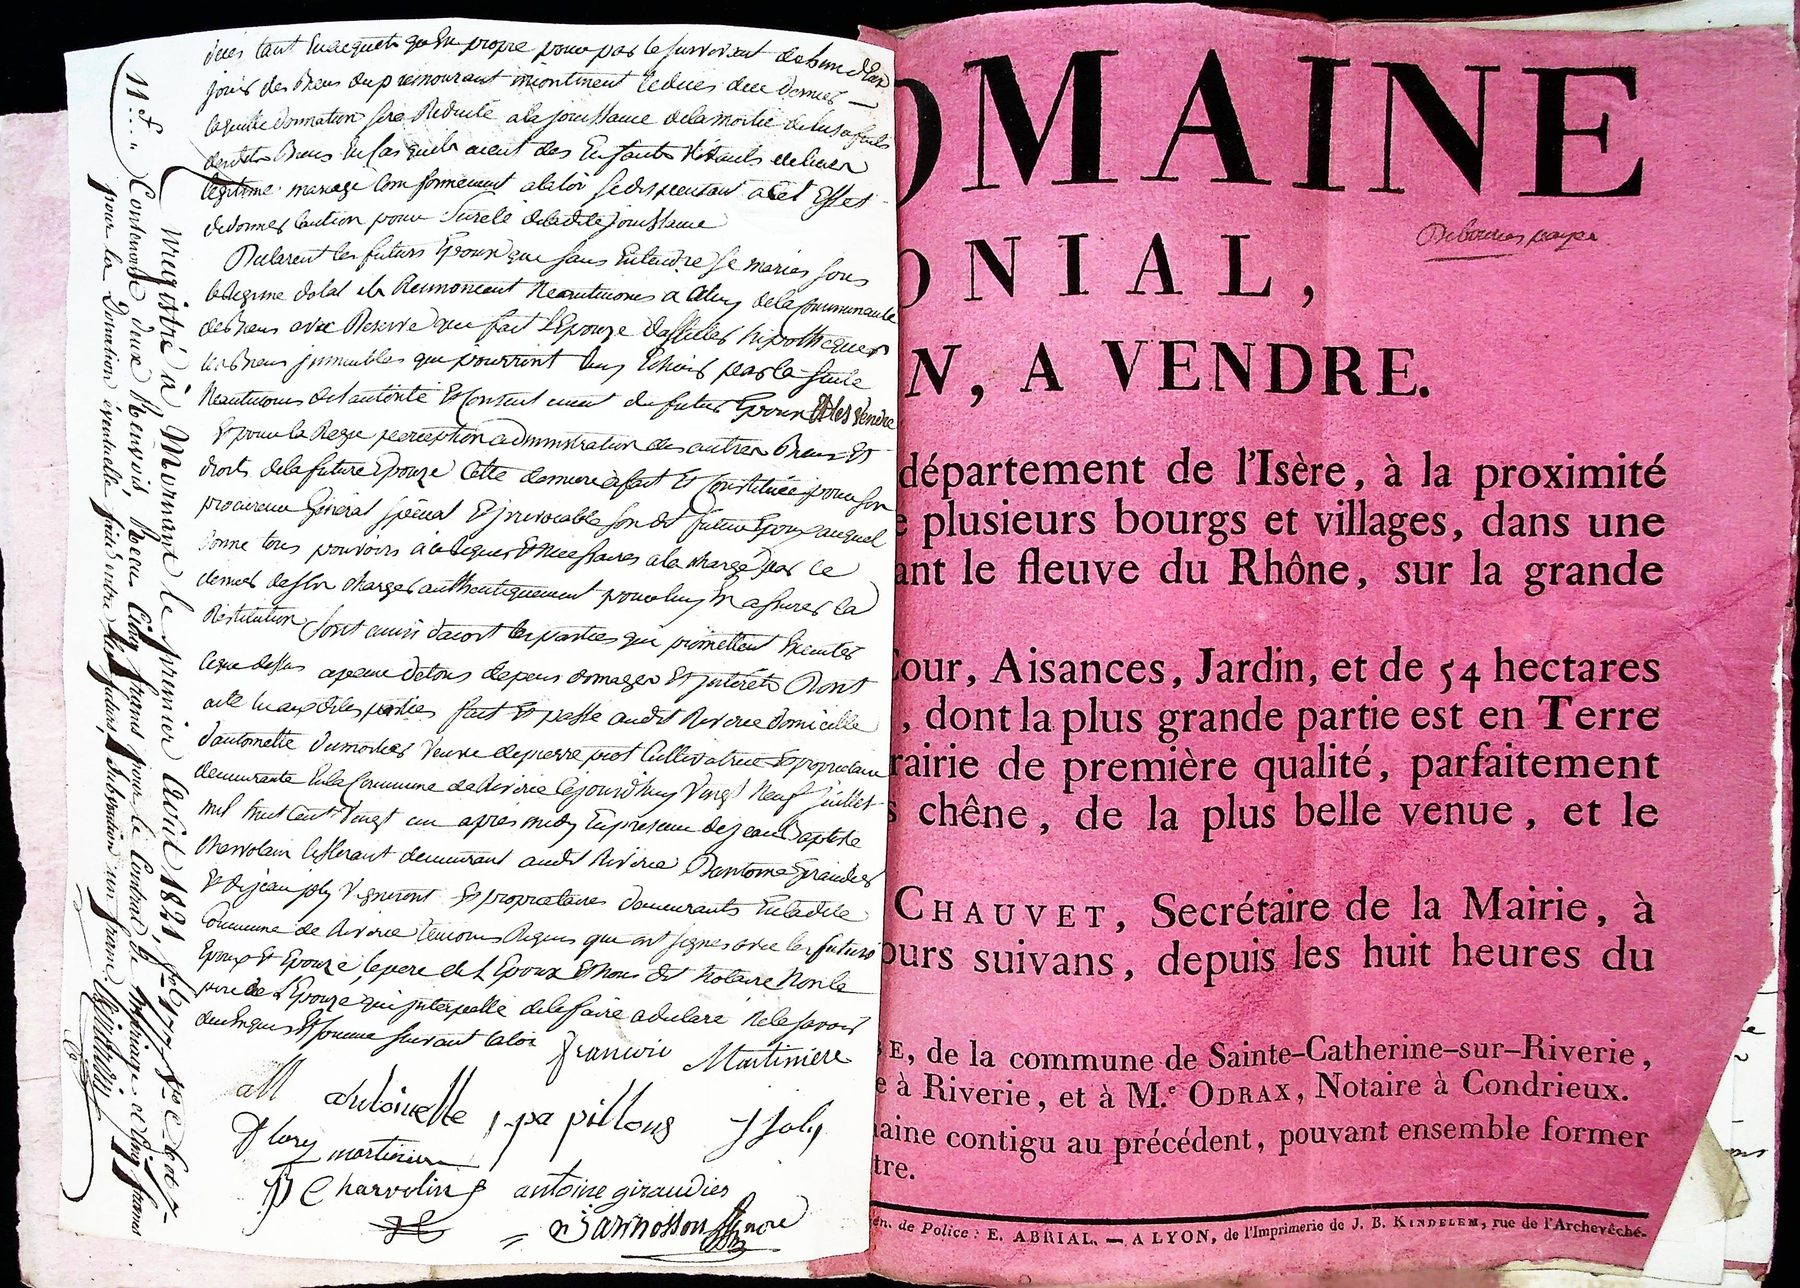 dues tant en acquets qu'en propre pour par le survivant
jouir des biens du premourant incontinent le deces de ce dernier —
laquelle donnation sera Reduite a la jouissance de la moitié de l'usufruit
desdits Biens en cas quil y aient des Enfants vivants de leur
legitime mariage Conformement a la loi se dispensant a cet Effet
de donner caution pour sureté de ladite jouissance
Declarent les futurs Epoux que sans Entendre se marier sous
le Regime dotal ils Renoncent Neantmoins a celuy de la Communauté
de biens avec Reserve que fait L'Epouze hipothequer
les biens immeubles que pourront luy Echoir par la suite
Neantmoins de l'autorité et Consentement du futur Epoux Et les vendre
Et pour la Regie perception administration des autres Biens Et
droits de la future Epouze Cette derniere a fait Et Constitué pour son
procureur Général spécial Et irrevocable son dit futur Epoux auquel
donne tous pouvoirs a ce Requis Et Necessaires a la charge par ce
dernier de s'en charger authentiquement pour luy En assurer la
Restitution Sont ainsi dacort les parties qui promettent Executer
ce que dessus a peine de tous depens domages Et intérêts Dont
acte auxdites parties fait Et passé audit Riverie domicille
d'antoinette veuve de pierre piot Cultivatrice Et propriétaire
demeurante En la Commune de Riverie Cejourd'huy Vingt Neuf juillet
mil huit Cent Vingt un apres midy En presence de jean Baptiste
Charvolin demeurant audit Riverie D'antoine Giraudier
Et de jean joly Vigneront Et propriétaires demeurants En ladite
Commune de Riverie temoins Requis qui ont signés avec les futurs
Epoux Et Epouze, le pere de L'Epoux Et Nous dit Notaire Non le
pere de L'Epouze qui interpellé de le faire a declaré Ne le savoir
de ce Enquis Et somme suivant la loi
francois Martinière
all antoinette papillons J Joly
martiniere
B Charvoling antoine giraudier
Jamosson Notaire
Enregistré à Mornant le premier août 1821, f.º 177 V.º C.
Contenant deux Renvois, Reçu Cinq francs pour le Contrat de Mariage et Cinq francs
pour la Donation éventuelle faite entre les futurs, Subvention un franc
11 f.
OMAINE
ONIAL,
N, A VENDRE.
département de l'Isère, à la proximité
e plusieurs bourgs et villages, dans une
ant le fleuve du Rhône, sur la grande
Cour, Aisances, Jardin, et de 54 hectares
, dont la plus grande partie est en Terre
rairie de première qualité, parfaitement
s chêne, de la plus belle venue, et le
CHAUVET, Secrétaire de la Mairie, à
ours suivans, depuis les huit heures du
BE, de la commune de Sainte-Catherine-sur-Riverie,
e à Riverie, et à M.e ODRAX, Notaire à Condrieux.
aine contigu au précédent, pouvant ensemble former
tre.
én. de Police : E. ABRIAL. — A LYON, de l'Imprimerie de J. B. KINDELEM, rue de l'Archevêché.